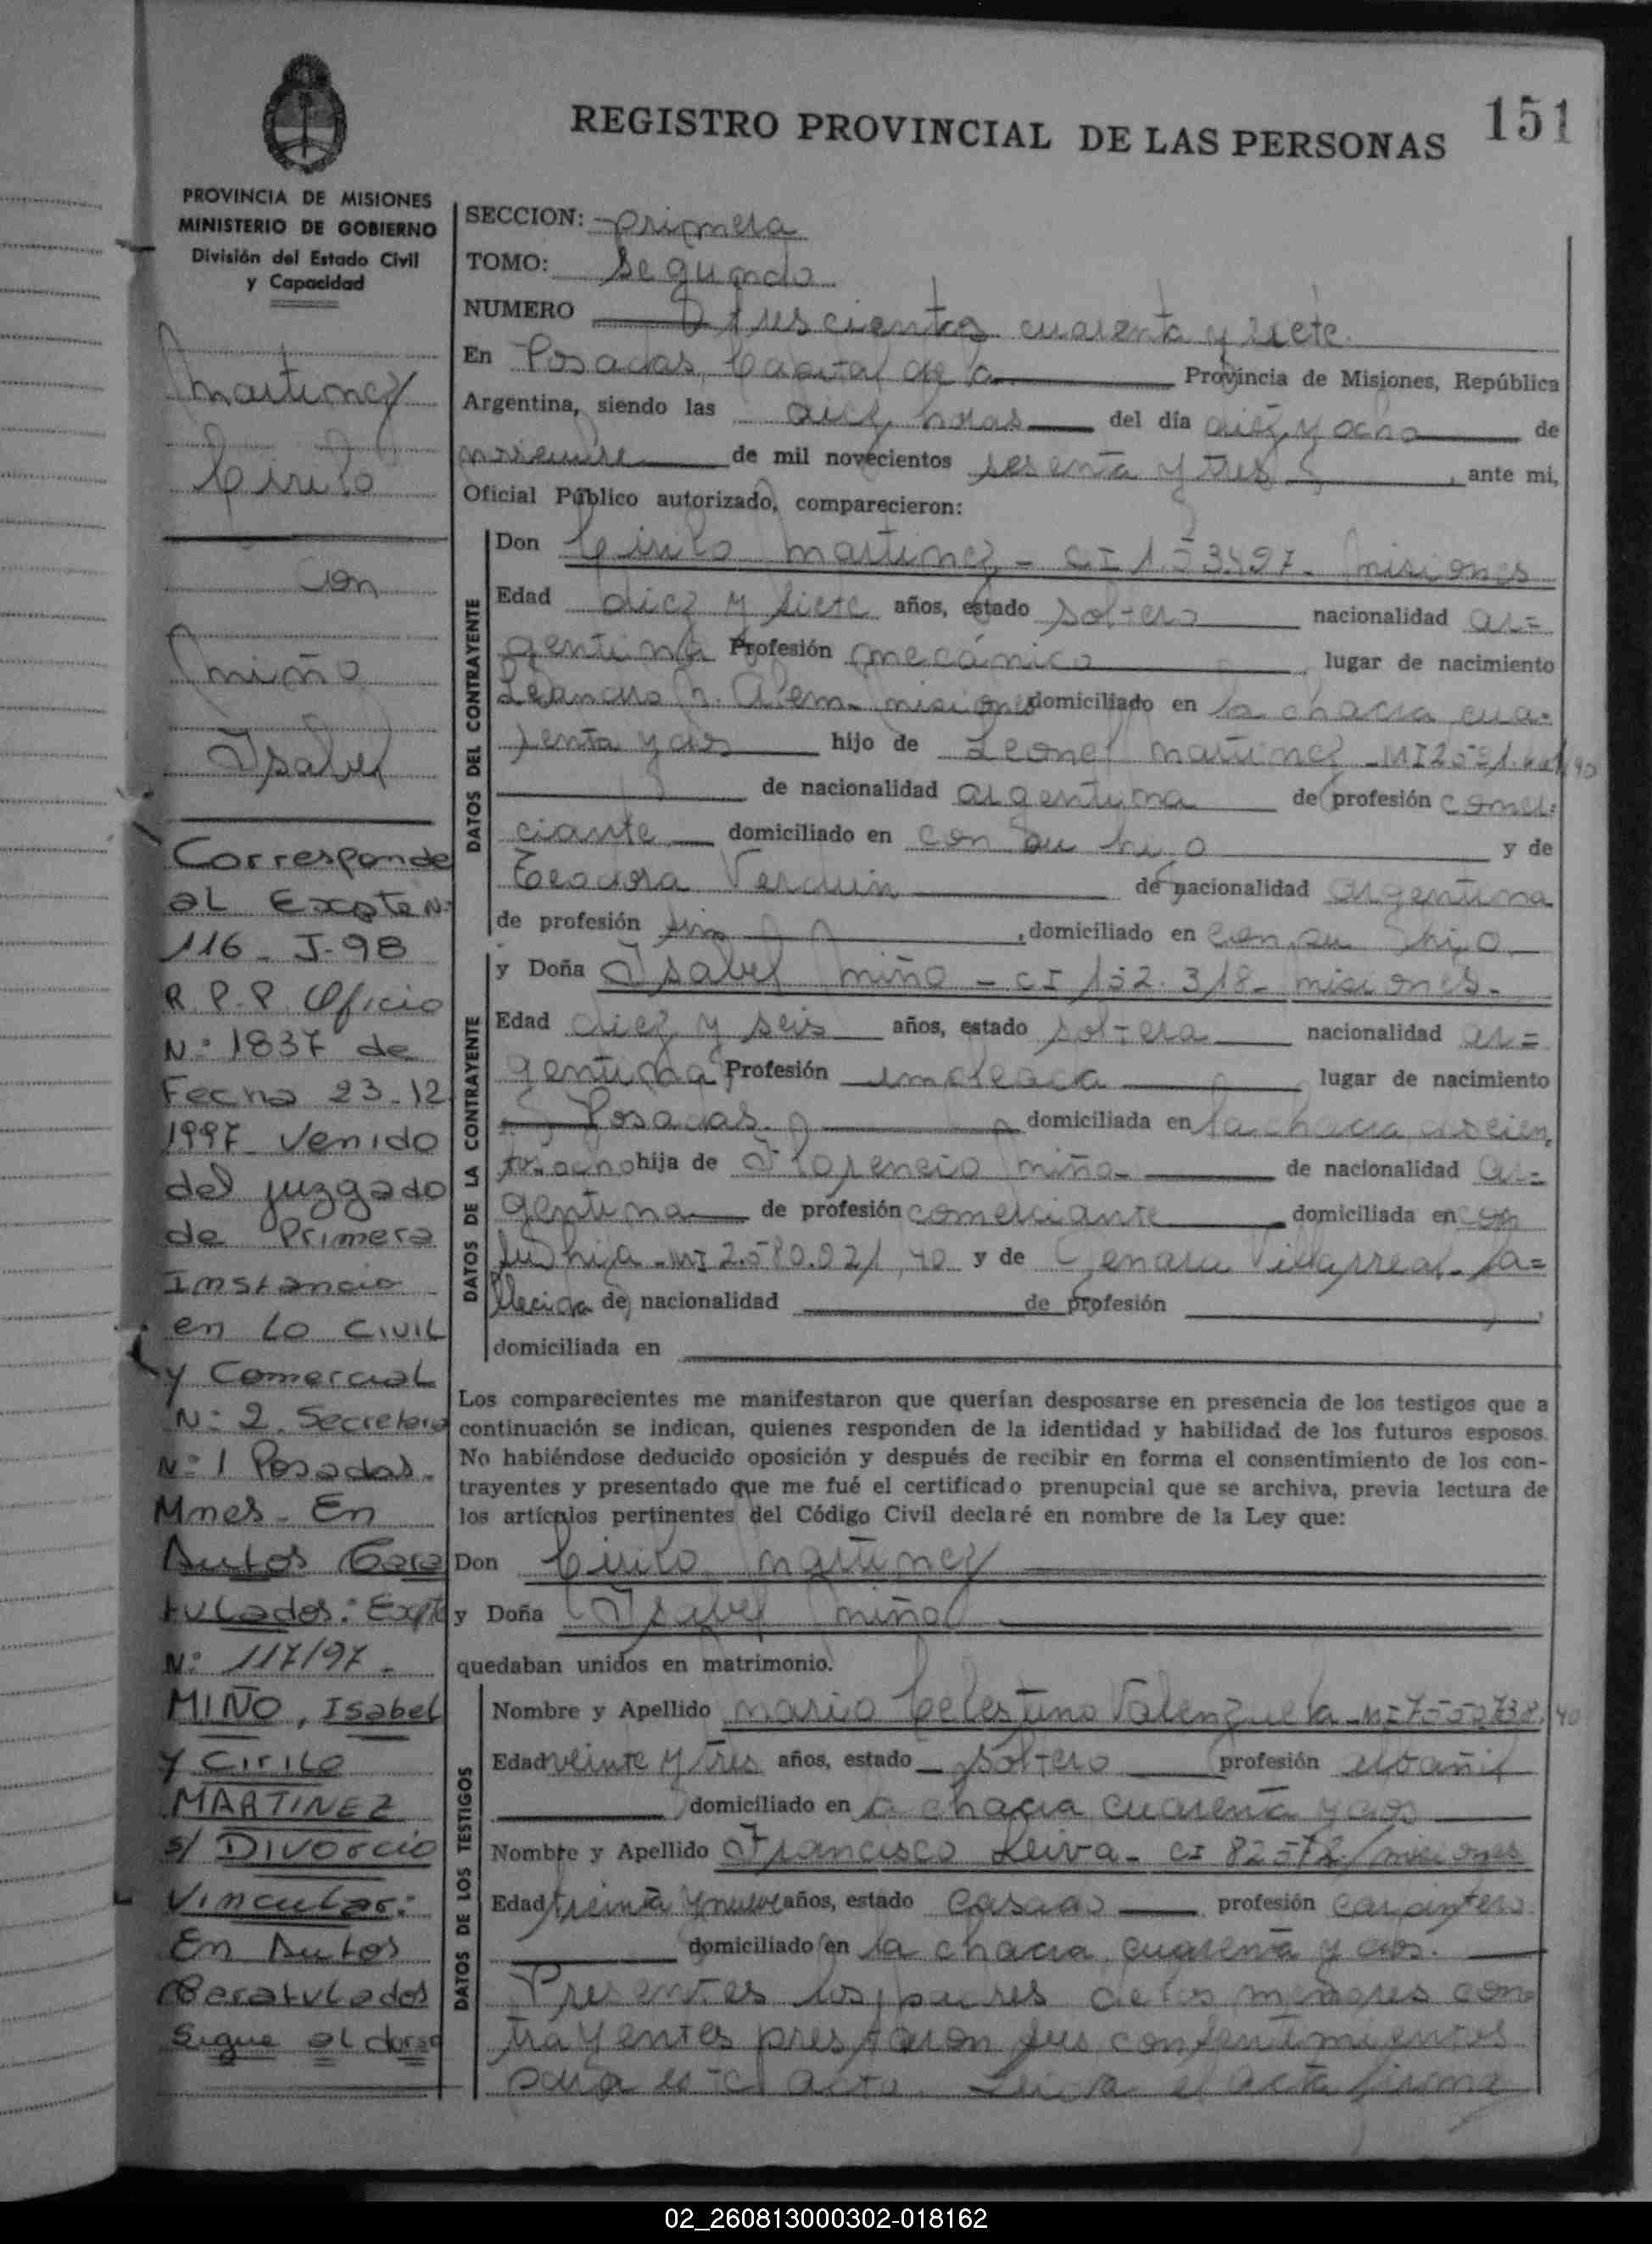 REGISTRO PROVINCIAL DE LAS PERSONAS
151
PROVINCIA DE MISIONES
MINISTERIO DE GOBIERNO
División del Estado Civil
y Capacidad
Martinez
Cirilo
con
Miño
Isabel
Corresponde
al Expte N:
116 - J-98
R.P.P. Oficio
N: 1837 de
Fecha 23-12
1997 Venido
del juzgado
de Primera
Instancia
en Lo Civil
y Comercial
N: 2. Secretaria
N: 1 Posadas.
Mnes - En
Autos Cara
tulados: Expte
N: 117/97 -
MIÑO, Isabel
y Cirilo
MARTINEZ
s/ Divorcio
Vincular:
En Autos
Caratulados
Sigue al dorso
SECCION: primera
TOMO: Segundo
NUMERO trescientos cuarenta y siete.
En Posadas, Capital de la Provincia de Misiones, República
Argentina, siendo las diez horas del día diez y ocho de
noviembre de mil novecientos sesenta y tres, ante mi,
Oficial Público autorizado, comparecieron:
DATOS DEL CONTRAYENTE
Don Cirilo Martinez - CI 153.497 - Misiones
Edad diez y siete años, estado soltero nacionalidad ar=
gentina Profesión mecánico lugar de nacimiento
Leandro N. Alem - Misiones domiciliado en la chacra cua-
renta y dos hijo de Leonel Martinez - MI
de nacionalidad argentina de profesión comer-
ciante domiciliado en con su hijo y de
Teodora Verdun de nacionalidad argentina
de profesión sin, domiciliado en con su hijo
DATOS DE LA CONTRAYENTE
y Doña Isabel Miño - CI 152.318 - Misiones -
Edad diez y seis años, estado soltera nacionalidad ar=
gentina Profesión empleada lugar de nacimiento
Posadas. domiciliada en la chacra doscien
tos ocho hija de Florencio Miño - de nacionalidad ar=
gentina de profesión comerciante domiciliada en con
su hija - MI 2.580.021,40 y de Genara Villarreal - fa=
llecida de nacionalidad de profesión
domiciliada en
Los comparecientes me manifestaron que querían desposarse en presencia de los testigos que a
continuación se indican, quienes responden de la identidad y habilidad de los futuros esposos.
No habiéndose deducido oposición y después de recibir en forma el consentimiento de los con-
trayentes y presentado que me fué el certificado prenupcial que se archiva, previa lectura de
los artículos pertinentes del Código Civil declaré en nombre de la Ley que:
Don Cirilo Martinez
y Doña Isabel Miño
quedaban unidos en matrimonio.
DATOS DE LOS TESTIGOS
Nombre y Apellido Mario Celestino Valenzuela - MI
Edad veinte y tres años, estado soltero profesión albañil
domiciliado en la chacra cuarenta y dos
Nombre y Apellido Francisco Leiva - CI 82578/Misiones
Edad treinta y nueve años, estado casado profesión carpintero
domiciliado en la chacra cuarenta y dos.
Presentes los padres de los menores con
trayentes prestaron sus consentimientos
para este acto. Leida el acta firma
02_260813000302-018162